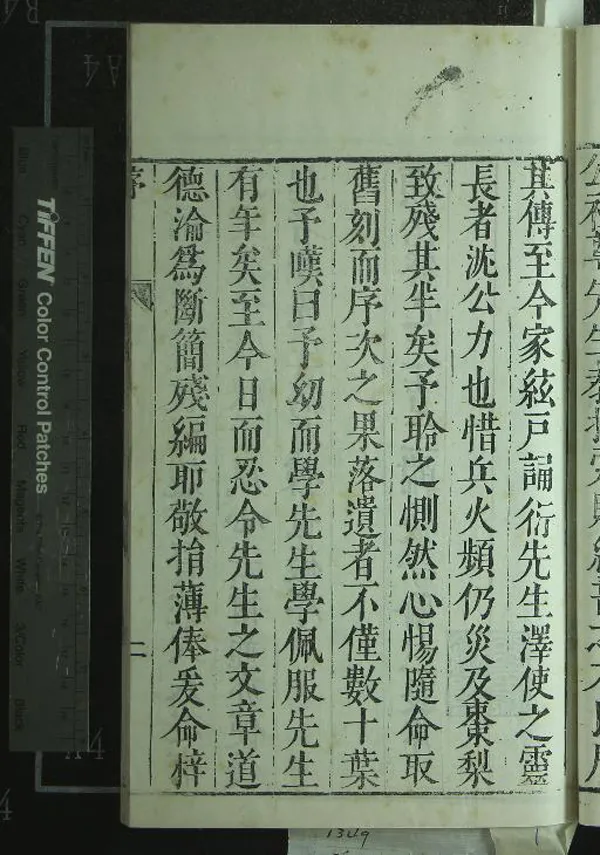 其傳至今家絃戶誦衍先生澤使之靈
長者沈公力也惜兵火頻仍災及棗梨
致殘其半矣予聆之惻然心惕隨命取
舊刻而序次之果落遺者不僅數十葉
也予嘆曰予幼而學先生學佩服先生
有年矣至今日而忍令先生之文章道
德淪為斷簡殘編耶敬捐薄俸爰命梓
序
二
TIFFEN Color Control Patches
Blue
Cyan
Green
Yellow
Red
Magenta
White
3/Color
Black
1349